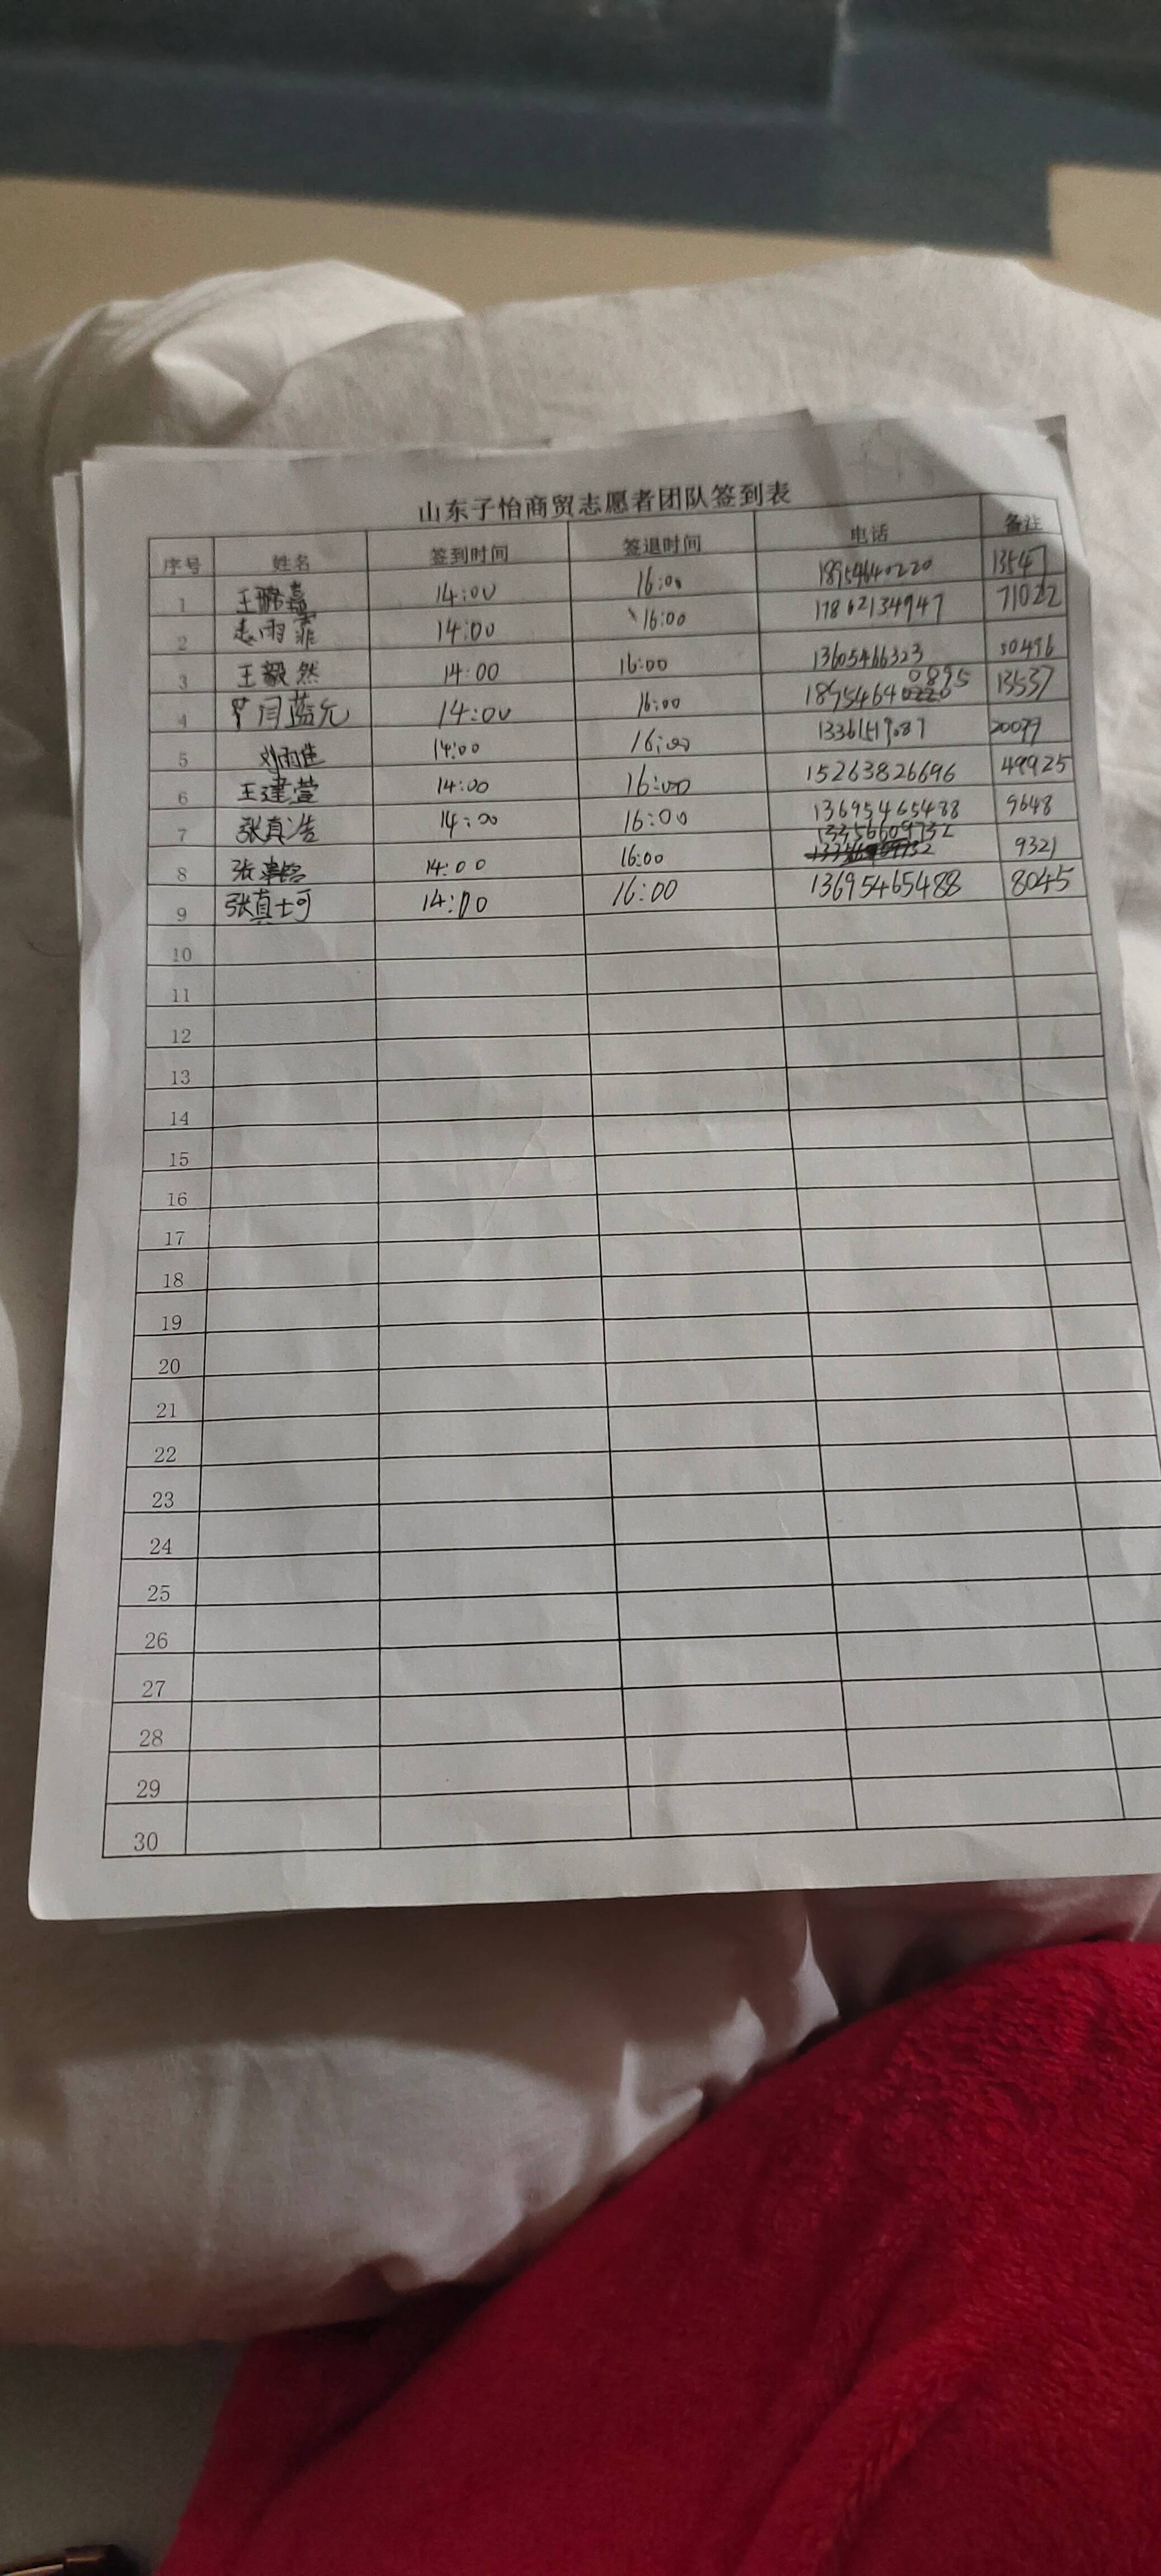 山东子怡商贸志愿者团队签到表
序号 姓名 签到时间 签退时间 电话 备注
1 王 嘉 14:00 16:00 18954640220 13547
2 14:00 16:00 17862134947 71022
3 王毅然 14:00 16:00 13605466323 50496
4 闫蓝允 14:00 16:00 18954640895 13537
5 刘雨佳 14:00 16:00 20079
6 王建萱 14:00 16:00 15263826696 49925
7 张真浩 14:00 16:00 13695465488 9648
8 张 铭 14:00 16:00 13356609732 9321
9 张真 14:00 16:00 13695465488 8045
10
11
12
13
14
15
16
17
18
19
20
21
22
23
24
25
26
27
28
29
30